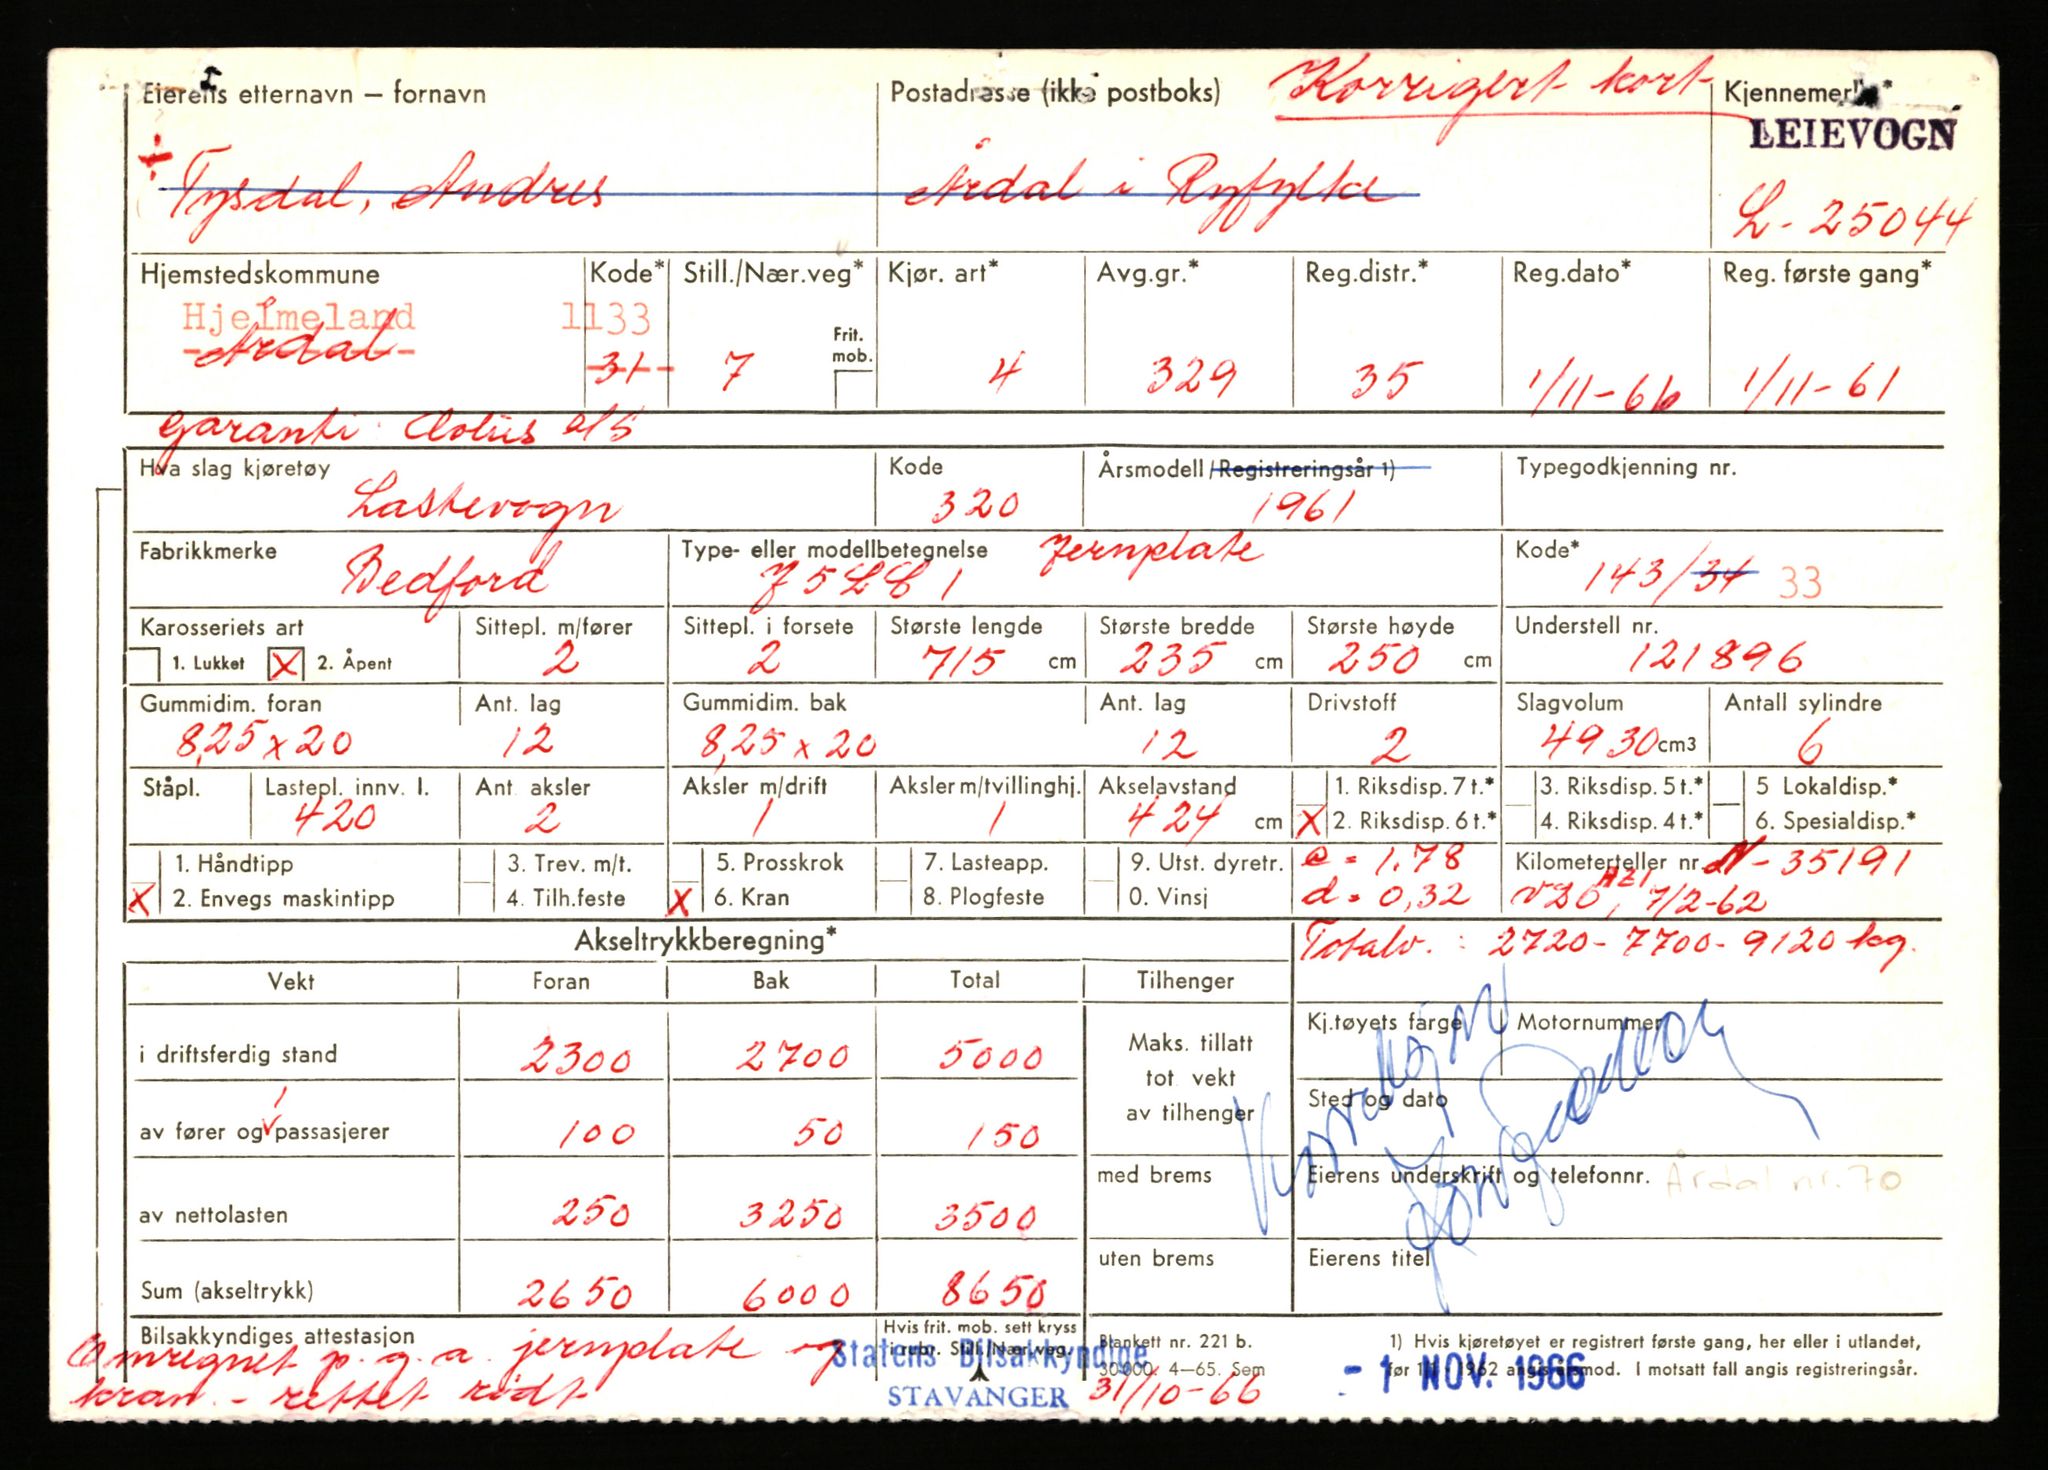 Eierens etternavn – fornavn Postadresse (ikke postboks) Korrigert kort Kjennemerke*
LEIEVOGN
÷ Tysdal, Andres Årdal i Ryfylke L - 25044
Hjemstedskommune Kode* Still./Nær.veg* Kjør. art* Avg.gr.* Reg.distr.* Reg.dato* Reg. første gang*
Hjelmeland 1133
Frit. mob.
Årdal 31 7 4 329 35 1/11-66 1/11-61
Garanti: a/s
Hva slag kjøretøy Kode Årsmodell/Registreringsår 1) Typegodkjenning nr.
Lastevogn 320 1961
Fabrikkmerke Type- eller modellbetegnelse Jernplate Kode*
Bedford J5LC1 143/34 33
Karosseriets art Sittepl. m/fører Sittepl. i forsete Største lengde Største bredde Største høyde Understell nr.
1. Lukket X 2. Åpent 2 2 715 cm 235 cm 250 cm 121896
Gummidim. foran Ant. lag Gummidim. bak Ant. lag Drivstoff Slagvolum Antall sylindre
8,25 x 20 12 8,25 x 20 12 2 4930 cm3 6
Ståpl. Lastepl. innv. l. Ant. aksler Aksler m/drift Aksler m/tvillinghj. Akselavstand 1. Riksdisp. 7 t.* 3. Riksdisp. 5 t.* 5 Lokaldisp.*
420 2 1 1 424 cm X 2. Riksdisp. 6 t.* 4. Riksdisp. 4 t.* 6. Spesialdisp.*
1. Håndtipp 3. Trev. m/t. 5. Prosskrok 7. Lasteapp. 9. Utst. dyretr. e = 1,78 Kilometerteller nr. N - 35191
X 2. Envegs maskintipp 4. Tilh.feste X 6. Kran 8. Plogfeste 0. Vinsj d = 0,32 7/2-62
Akseltrykkberegning* Totalv. : 2720 - 7700 - 9120 kg.
Vekt Foran Bak Total Tilhenger
Kj.tøyets farge Motornummer
i driftsferdig stand 2300 2700 5000 Maks. tillatt
tot vekt
av tilhenger
Sted og dato
av fører og 1 passasjerer 100 50 150
med brems Eierens underskrift og telefonnr. Årdal nr. 70
av nettolasten 250 3250 3500
uten brems Eierens titel
Sum (akseltrykk) 2650 6000 8650
Bilsakkyndiges attestasjon Hvis frit. mob. sett kryss
i rubr. Still./Nær.veg. Blankett nr. 221 b. 1) Hvis kjøretøyet er registrert første gang, her eller i utlandet,
Omregnet p.g.a. jernplate og Statens Bilsakkyndige 30 000. 4–65. Sem før 1/1 1962 angis årsmod. I motsatt fall angis registreringsår.
kran - rettet rødt STAVANGER 31/10-66 - 1 NOV. 1966